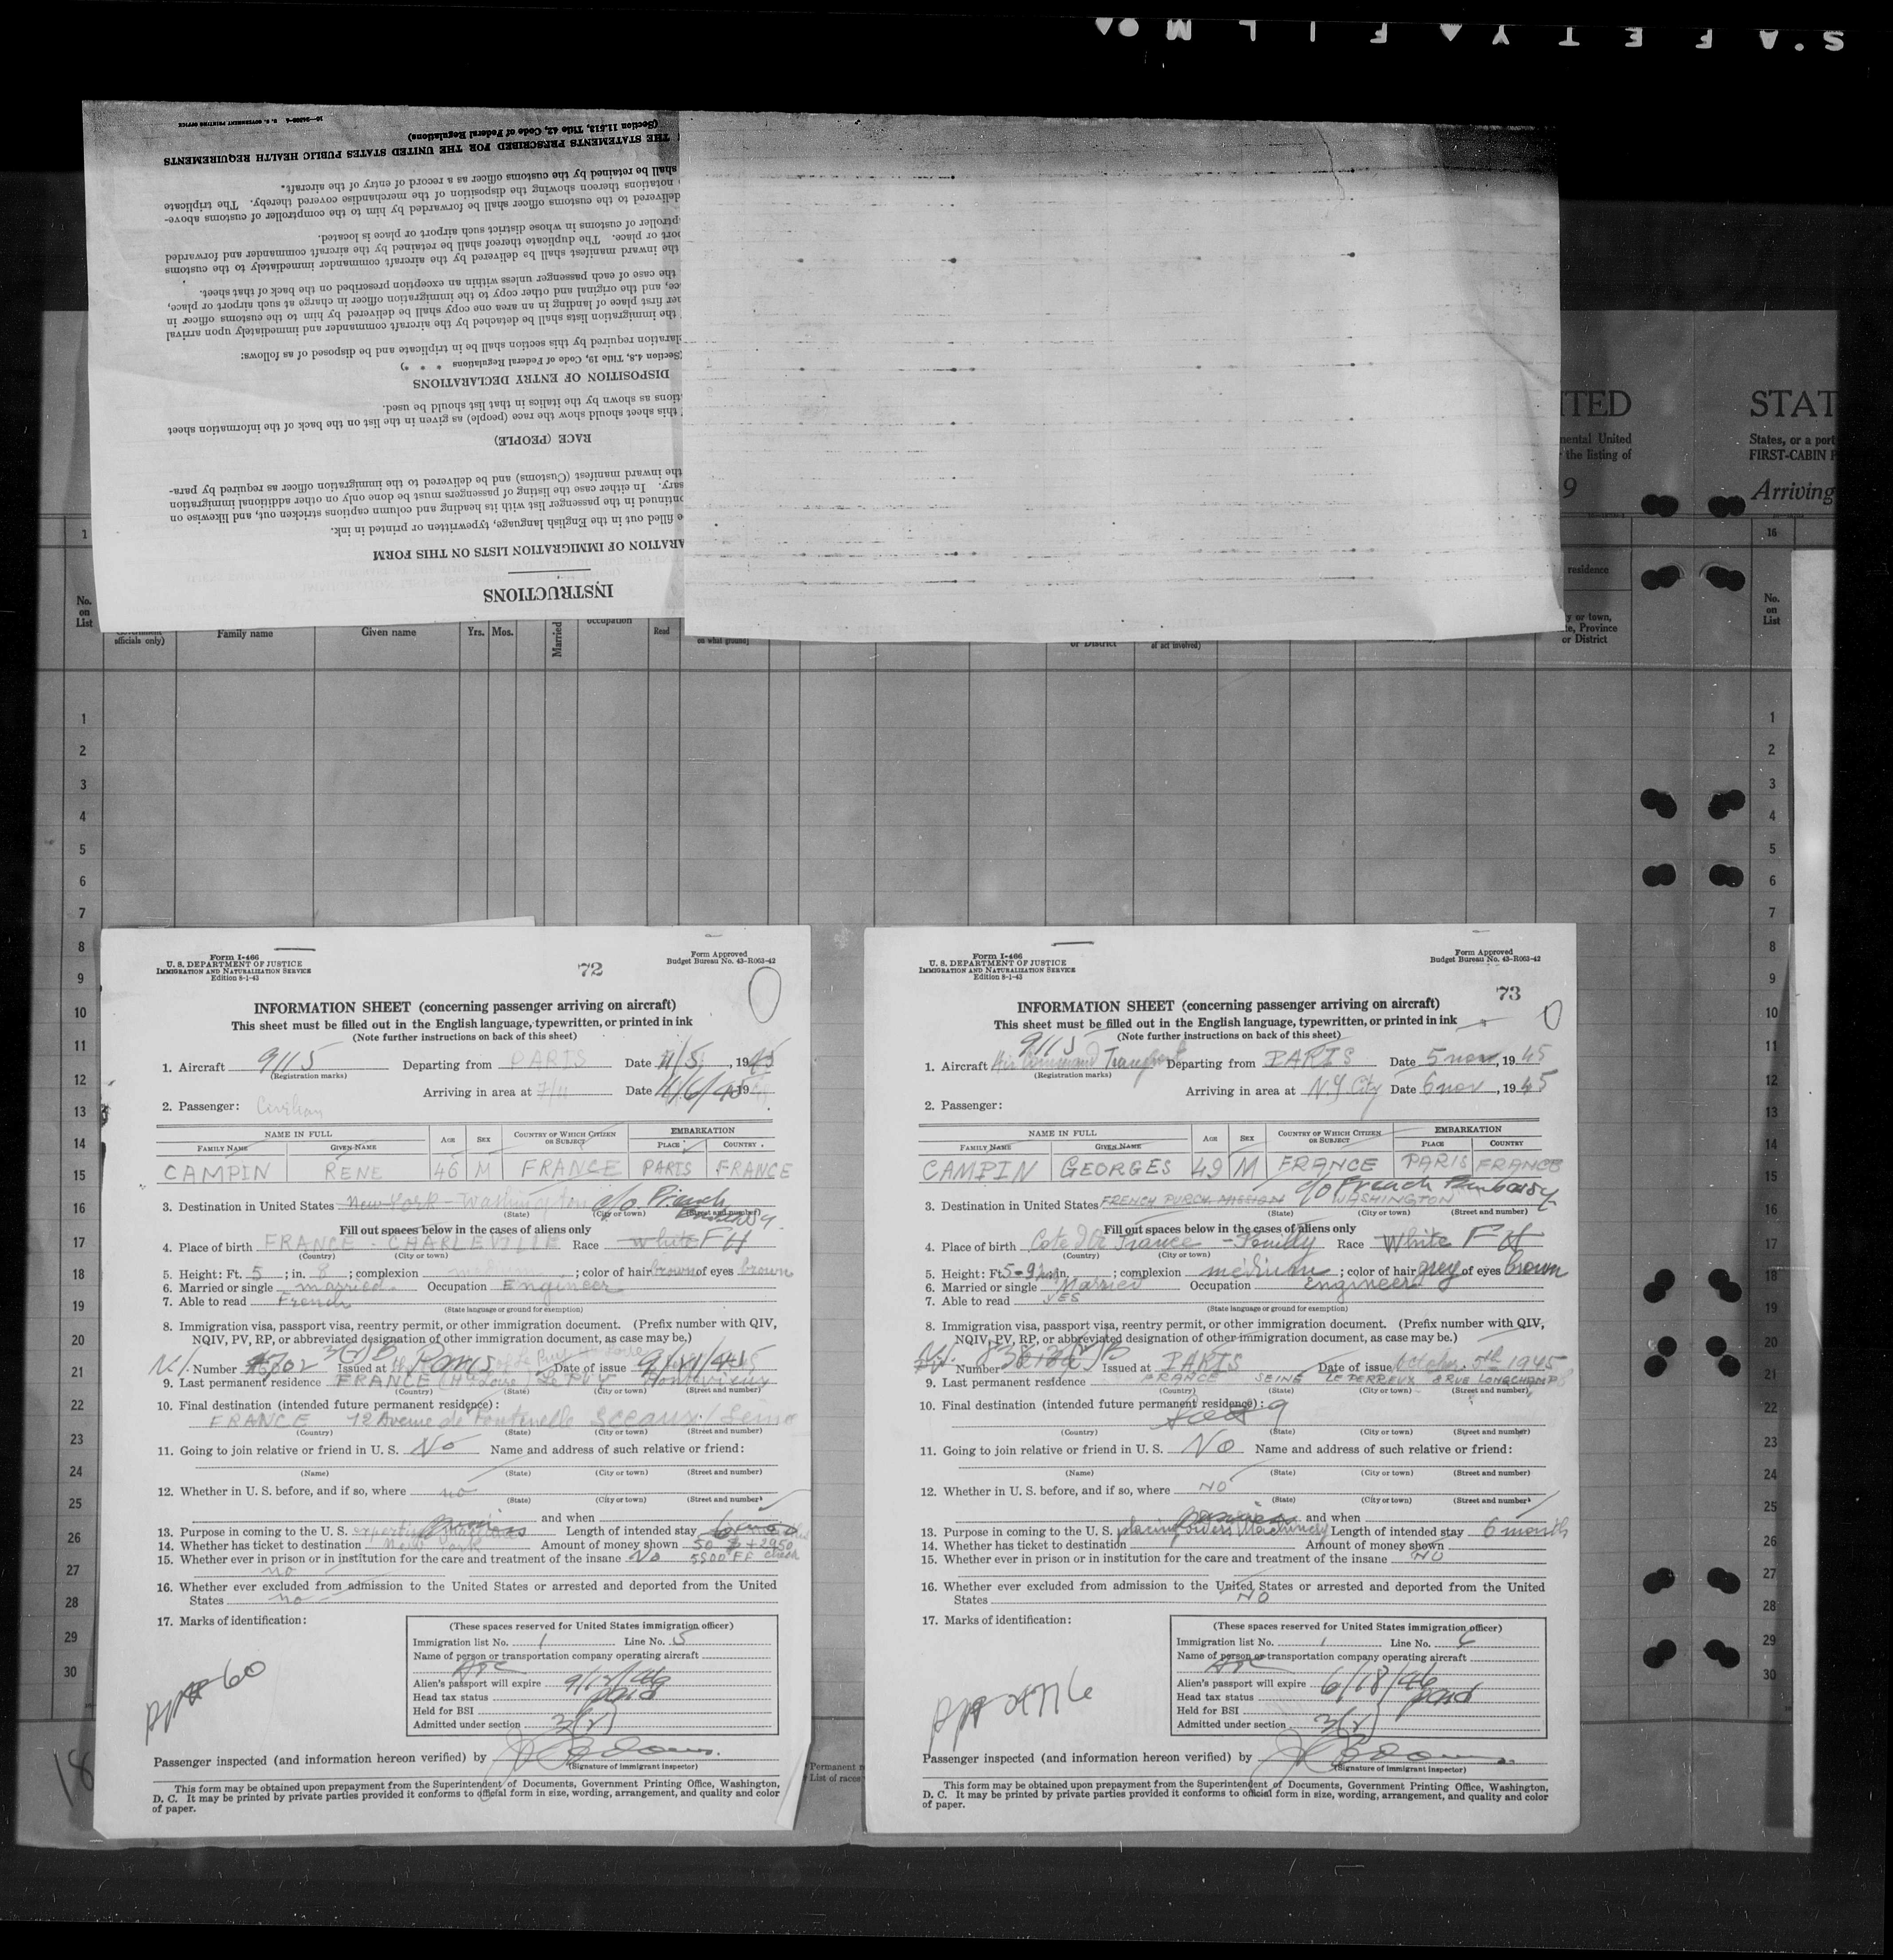 SAFETY FILM
16—24306-4 U. S. GOVERNMENT PRINTING OFFICE
(Section 11.513, Title 42, Code of Federal Regulations)
THE STATEMENTS PRESCRIBED FOR THE UNITED STATES PUBLIC HEALTH REQUIREMENTS
shall be retained by the customs officer as a record of entry of the aircraft.
notations thereon showing the disposition of the merchandise covered thereby. The triplicate
delivered to the customs officer shall be forwarded by him to the comptroller of customs above-
ptroller of customs in whose district such airport or place is located.
port or place. The duplicate thereof shall be retained by the aircraft commander and forwarded
the inward manifest shall be delivered by the aircraft commander immediately to the customs
the case of each passenger unless within an exception prescribed on the back of that sheet.
ce, and the original and other copy to the immigration officer in charge at such airport or place,
her first place of landing in an area one copy shall be delivered by him to the customs officer in
the immigration lists shall be detached by the aircraft commander and immediately upon arrival
laration required by this section shall be in triplicate and be disposed of as follows:
(Section 4.8, Title 19, Code of Federal Regulations * * *)
DISPOSITION OF ENTRY DECLARATIONS
tions as shown by the italics in that list should be used.
this sheet should show the race (people) as given in the list on the back of the information sheet
RACE (PEOPLE)
the inward manifest (Customs) and be delivered to the immigration officer as required by para-
sary. In either case the listing of passengers must be done only on other additional immigration
ontinued in the passenger list with its heading and column captions stricken out, and likewise on
e filled out in the English language, typewritten or printed in ink.
ARATION OF IMMIGRATION LISTS ON THIS FORM
INSTRUCTIONS
ITED STAT
mental United States, or a port
the listing of FIRST-CABIN P
9 Arriving
1 16
residence
No. on List
officials only) Family name Given name Yrs. Mos. Married occupation Read on what ground] or District of act involved)
y or town, te, Province or District
No. on List
1 1
2 2
3 3
4 4
5 5
6 6
7 7
8 8
9 9
10 10
11 11
12 12
13 13
14 14
15 15
16 16
17 17
18 18
19 19
20 20
21 21
22 22
23 23
24 24
25 25
26 26
27 27
28 28
29 29
30 30
18
Permanent r
List of races
Form I-466
U. S. DEPARTMENT OF JUSTICE
IMMIGRATION AND NATURALIZATION SERVICE
Edition 8-1-43
72
Form Approved
Budget Bureau No. 43-R063-42
INFORMATION SHEET (concerning passenger arriving on aircraft)
This sheet must be filled out in the English language, typewritten, or printed in ink
(Note further instructions on back of this sheet)
1. Aircraft 9115 Departing from PARIS Date 11/5, 1945
(Registration marks)
Arriving in area at Date 11/6/45 19
2. Passenger: Civilian
NAME IN FULL AGE SEX COUNTRY OF WHICH CITIZEN OR SUBJECT EMBARKATION
FAMILY NAME GIVEN NAME PLACE COUNTRY
CAMPIN RENE 46 M FRANCE PARIS FRANCE
3. Destination in United States New York - Washington c/o French
(State) (City or town) (Street and number)
Fill out spaces below in the cases of aliens only
4. Place of birth FRANCE - CHARLEVILLE Race White FH
(Country) (City or town)
5. Height: Ft. 5; in. 8; complexion medium; color of hair brown of eyes brown
6. Married or single married Occupation Engineer
7. Able to read French
(State language or ground for exemption)
8. Immigration visa, passport visa, reentry permit, or other immigration document. (Prefix number with QIV,
NQIV, PV, RP, or abbreviated designation of other immigration document, as case may be.)
Number 3(2)B Issued at Paris Date of issue
9. Last permanent residence FRANCE (Hte Loire) Le PUY
(Country) (State) (City or town) (Street and number)
10. Final destination (intended future permanent residence):
FRANCE 12 Avenue de Fontenelle Sceaux / Seine
(Country) (State) (City or town) (Street and number)
11. Going to join relative or friend in U. S. No Name and address of such relative or friend:
(Name) (State) (City or town) (Street and number)
12. Whether in U. S. before, and if so, where no
(State) (City or town) (Street and number)
and when
13. Purpose in coming to the U. S. Length of intended stay 6 mos
14. Whether has ticket to destination New York Amount of money shown 50 $ + 2950
15. Whether ever in prison or in institution for the care and treatment of the insane No 5500 FF check
no
16. Whether ever excluded from admission to the United States or arrested and deported from the United
States no
17. Marks of identification:
(These spaces reserved for United States immigration officer)
Immigration list No. 1 Line No. 5
Name of person or transportation company operating aircraft
ATC
Alien's passport will expire 9/12/46
Head tax status paid
Held for BSI
Admitted under section 3(2)
60
Passenger inspected (and information hereon verified) by
(Signature of immigrant inspector)
This form may be obtained upon prepayment from the Superintendent of Documents, Government Printing Office, Washington,
D. C. It may be printed by private parties provided it conforms to official form in size, wording, arrangement, and quality and color
of paper.
Form I-466
U. S. DEPARTMENT OF JUSTICE
IMMIGRATION AND NATURALIZATION SERVICE
Edition 8-1-43
Form Approved
Budget Bureau No. 43-R063-42
73
INFORMATION SHEET (concerning passenger arriving on aircraft)
This sheet must be filled out in the English language, typewritten, or printed in ink
(Note further instructions on back of this sheet)
9115
1. Aircraft Air Command Transport Departing from PARIS Date 5 nov, 1945
(Registration marks)
Arriving in area at N.Y City Date 6 nov, 1945
2. Passenger:
NAME IN FULL AGE SEX COUNTRY OF WHICH CITIZEN OR SUBJECT EMBARKATION
FAMILY NAME GIVEN NAME PLACE COUNTRY
CAMPIN GEORGES 49 M FRANCE PARIS FRANCE
3. Destination in United States FRENCH PURCH. MISSION c/o French Embassy WASHINGTON
(State) (City or town) (Street and number)
Fill out spaces below in the cases of aliens only
4. Place of birth Cote d'Or France - Pouilly Race White FH
(Country) (City or town)
5. Height: Ft. 5-9 in.; complexion medium; color of hair grey of eyes brown
6. Married or single Married Occupation Engineer
7. Able to read YES
(State language or ground for exemption)
8. Immigration visa, passport visa, reentry permit, or other immigration document. (Prefix number with QIV,
NQIV, PV, RP, or abbreviated designation of other immigration document, as case may be.)
Number Issued at PARIS Date of issue October 5th 1945
9. Last permanent residence FRANCE SEINE LE PERREUX 8 RUE LONGCHAMP
(Country) (State) (City or town) (Street and number)
10. Final destination (intended future permanent residence):
See 9
(Country) (State) (City or town) (Street and number)
11. Going to join relative or friend in U. S. NO Name and address of such relative or friend:
(Name) (State) (City or town) (Street and number)
12. Whether in U. S. before, and if so, where NO
(State) (City or town) (Street and number)
and when
13. Purpose in coming to the U. S. placing orders Machinery Length of intended stay 6 month
14. Whether has ticket to destination Amount of money shown
15. Whether ever in prison or in institution for the care and treatment of the insane NO
16. Whether ever excluded from admission to the United States or arrested and deported from the United
States NO
17. Marks of identification:
(These spaces reserved for United States immigration officer)
Immigration list No. 1 Line No. 6
Name of person or transportation company operating aircraft
ATC
Alien's passport will expire 6/18/46
Head tax status paid
Held for BSI
Admitted under section 3(2)
Passenger inspected (and information hereon verified) by
(Signature of immigrant inspector)
This form may be obtained upon prepayment from the Superintendent of Documents, Government Printing Office, Washington,
D. C. It may be printed by private parties provided it conforms to official form in size, wording, arrangement, and quality and color
of paper.